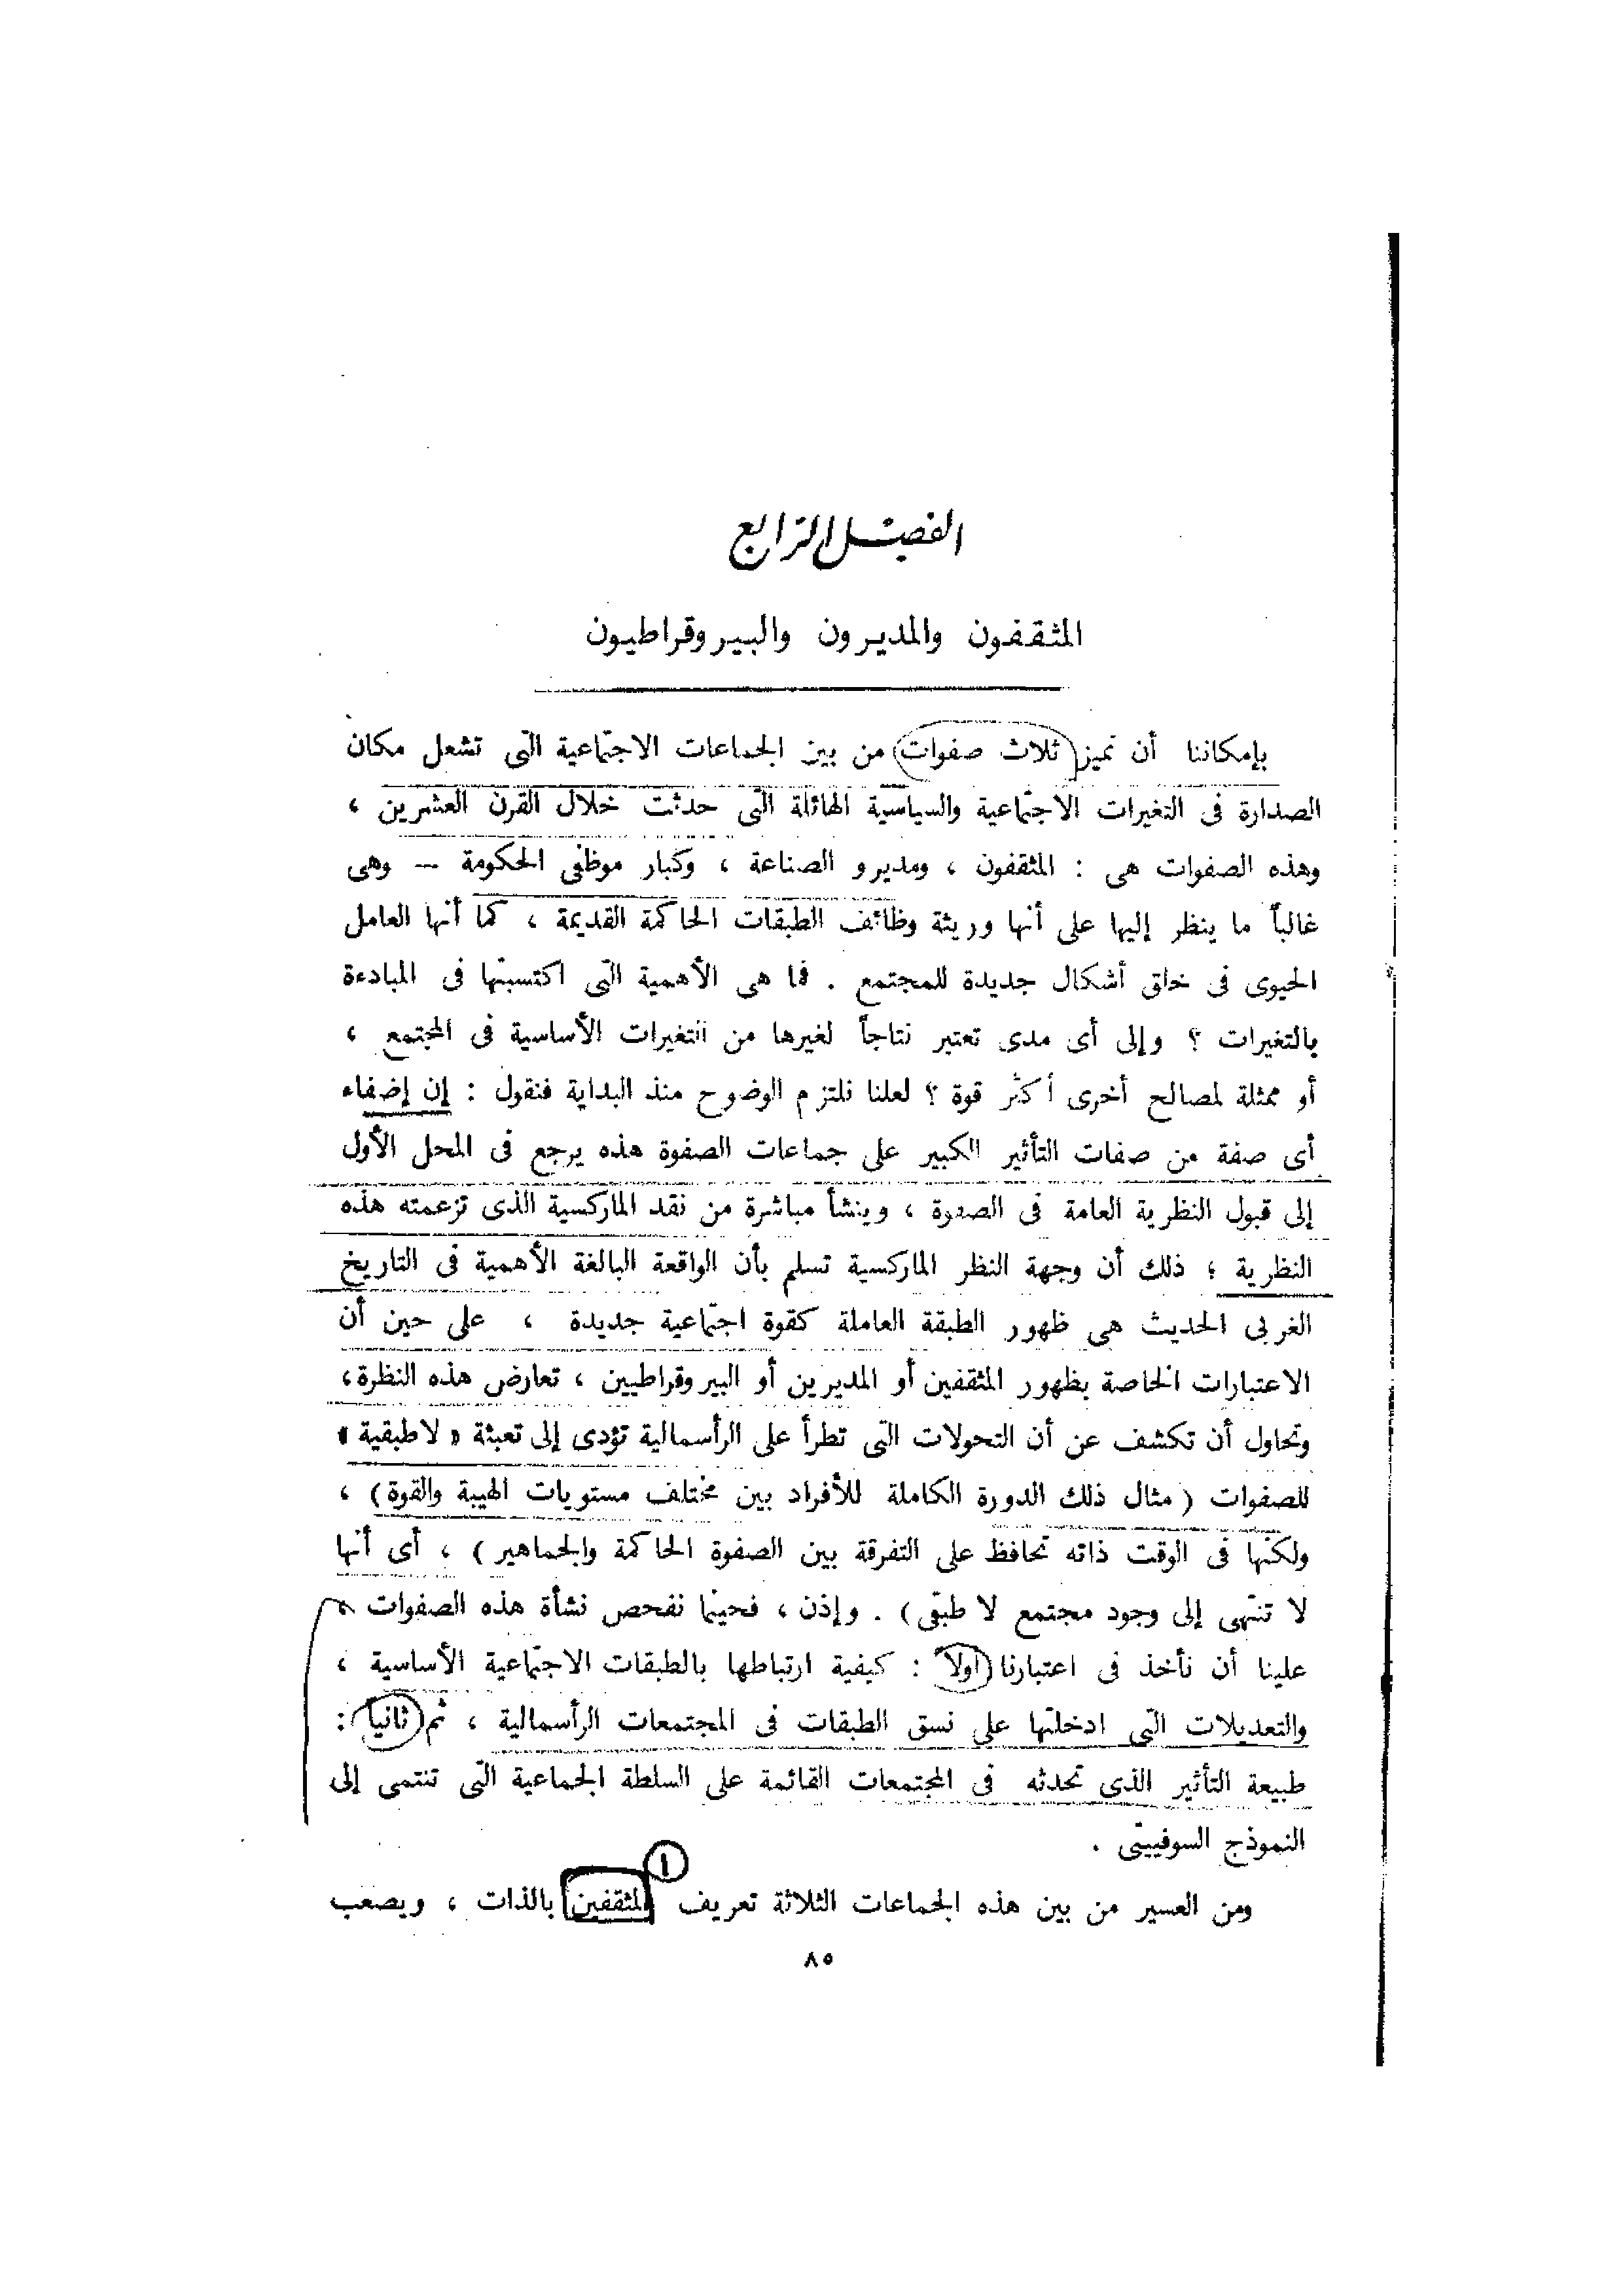 الفصل الرابع
المثقفون والمديرون والبيروقراطيون
بإمكاننا أن نميز ثلاث صفوات من بين الجماعات الاجتماعية التى تشغل مكان
الصدارة فى التغيرات الاجتماعية والسياسية الهائلة التى حدثت خلال القرن العشرين ،
وهذه الصفوات هى : المثقفون ، ومديرو الصناعة ، وكبار موظفى الحكومة – وهى
غالباً ما ينظر إليها على أنها وريثة وظائف الطبقات الحاكمة القديمة ، كما أنها العامل
الحيوى فى خلق أشكال جديدة للمجتمع . فما هى الأهمية التى اكتسبتها فى المبادءة
بالتغيرات ؟ وإلى أى مدى تعتبر نتاجاً لغيرها من التغيرات الأساسية فى المجتمع ،
أو ممثلة لمصالح أخرى أكثر قوة ؟ لعلنا نلتزم الوضوح منذ البداية فنقول : إن إضفاء
أى صفة من صفات التأثير الكبير على جماعات الصفوة هذه يرجع فى المحل الأول
إلى قبول النظرية العامة فى الصفوة ، وينشأ مباشرة من نقد الماركسية الذى تزعمته هذه
النظرية ؛ ذلك أن وجهة النظر الماركسية تسلم بأن الواقعة البالغة الأهمية فى التاريخ
الغربى الحديث هى ظهور الطبقة العاملة كقوة اجتماعية جديدة ، على حين أن
الاعتبارات الخاصة بظهور المثقفين أو المديرين أو البيروقراطيين ، تعارض هذه النظرة،
وتحاول أن تكشف عن أن التحولات التى تطرأ على الرأسمالية تؤدى إلى تعبئة « لا طبقية »
للصفوات ( مثال ذلك الدورة الكاملة للأفراد بين مختلف مستويات الهيبة والقوة ) ،
ولكنها فى الوقت ذاته تحافظ على التفرقة بين الصفوة الحاكمة والجماهير ) ، أى أنها
لا تنتهى إلى وجود مجتمع لا طبقى ) . وإذن ، فحينما نفحص نشأة هذه الصفوات ،
علينا أن نأخذ فى اعتبارنا أولاً : كيفية ارتباطها بالطبقات الاجتماعية الأساسية ،
والتعديلات التى ادخلتها على نسق الطبقات فى المجتمعات الرأسمالية ، ثم ثانياً :
طبيعة التأثير الذى تحدثه فى المجتمعات القائمة على السلطة الجماعية التى تنتمى إلى
النموذج السوفييتى .
١
ومن العسير من بين هذه الجماعات الثلاثة تعريف المثقفين بالذات ، ويصعب
٨٥